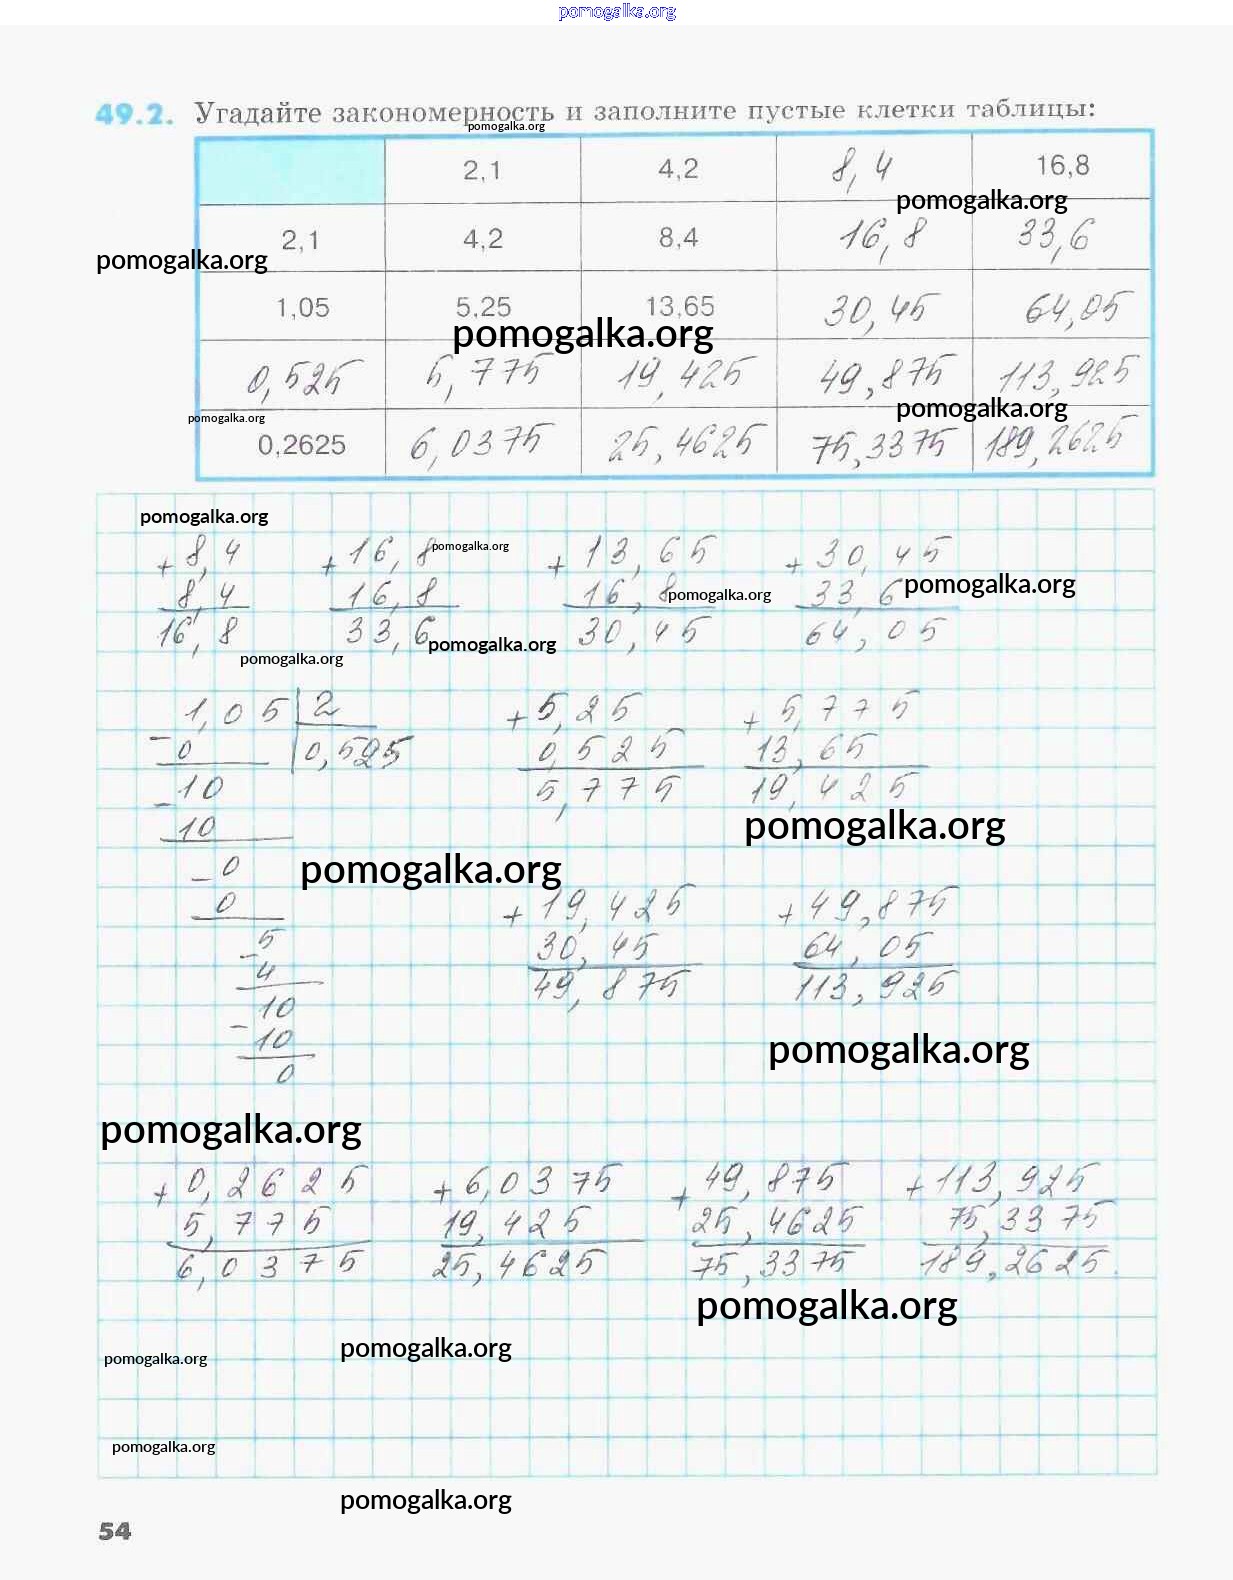 pomogalka.org
49.2. Угадайте закономерность и заполните пустые клетки таблицы:
pomogalka.org
2,1 4,2 8,4 16,8
pomogalka.org
2,1 4,2 8,4 16,8 33,6
pomogalka.org
1,05 5,25 13,65 30,45 64,05
pomogalka.org
0,525 5,775 19,425 49,875 113,925
pomogalka.org
pomogalka.org
0,2625 6,0375 25,4625 75,3375 189,2625
pomogalka.org
+ 8,4 + 16,8 + 13,65 + 30,45
pomogalka.org
8,4 16,8 16,8 33,6
pomogalka.org pomogalka.org
16,8 33,6 30,45 64,05
pomogalka.org
pomogalka.org
- 1,05 2 + 5,25 + 5,775
0 0,525 0,525 13,65
- 10 5,775 19,425
10
pomogalka.org
pomogalka.org
- 0
0 + 19,425 + 49,875
- 5 30,45 64,05
4 49,875 113,925
- 10
10
pomogalka.org
0
pomogalka.org
+ 0,2625 + 6,0375 + 49,875 + 113,925
5,775 19,425 25,4625 75,3375
6,0375 25,4625 75,3375 189,2625
pomogalka.org
pomogalka.org
pomogalka.org
pomogalka.org
pomogalka.org
54